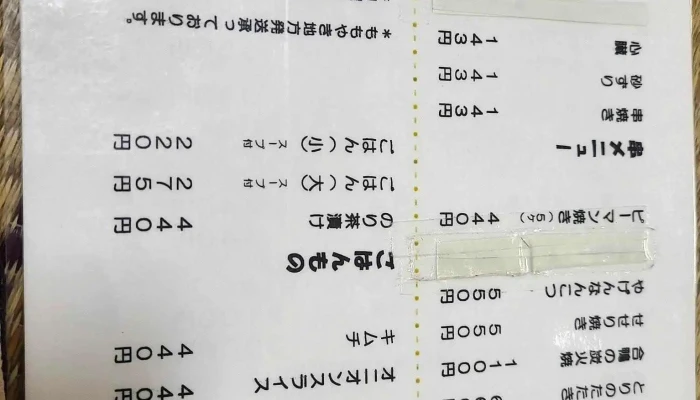 とりのたたき
合鴨の炭火焼 1100円
せせり焼き 550円
やげんなんこつ 550円
ピーマン焼き(5ケ) 440円
串メニュー
串焼き 143円
砂ずり 143円
心臓 143円
オニオンスライス 440円
キムチ 440円
ごはんもの
のり茶漬け 440円
ごはん(大) スープ付 275円
ごはん(小) スープ付 220円
*ももやき地方発送承っております。